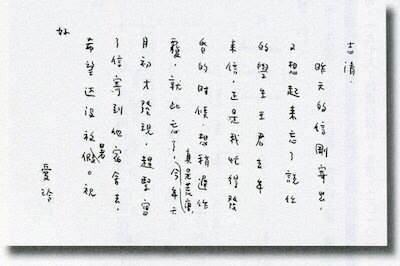 志清,
昨天的信剛寄出,
又想起來忘了說你
的學生王君去年
來信,正是我忙得發
昏的时候,想稍遲作
覆,就此忘了,真是荒唐,今年六
月初才發現,趕緊寫
了信寄到他宿舍去,
希望还没放暑假。祝
好
愛玲